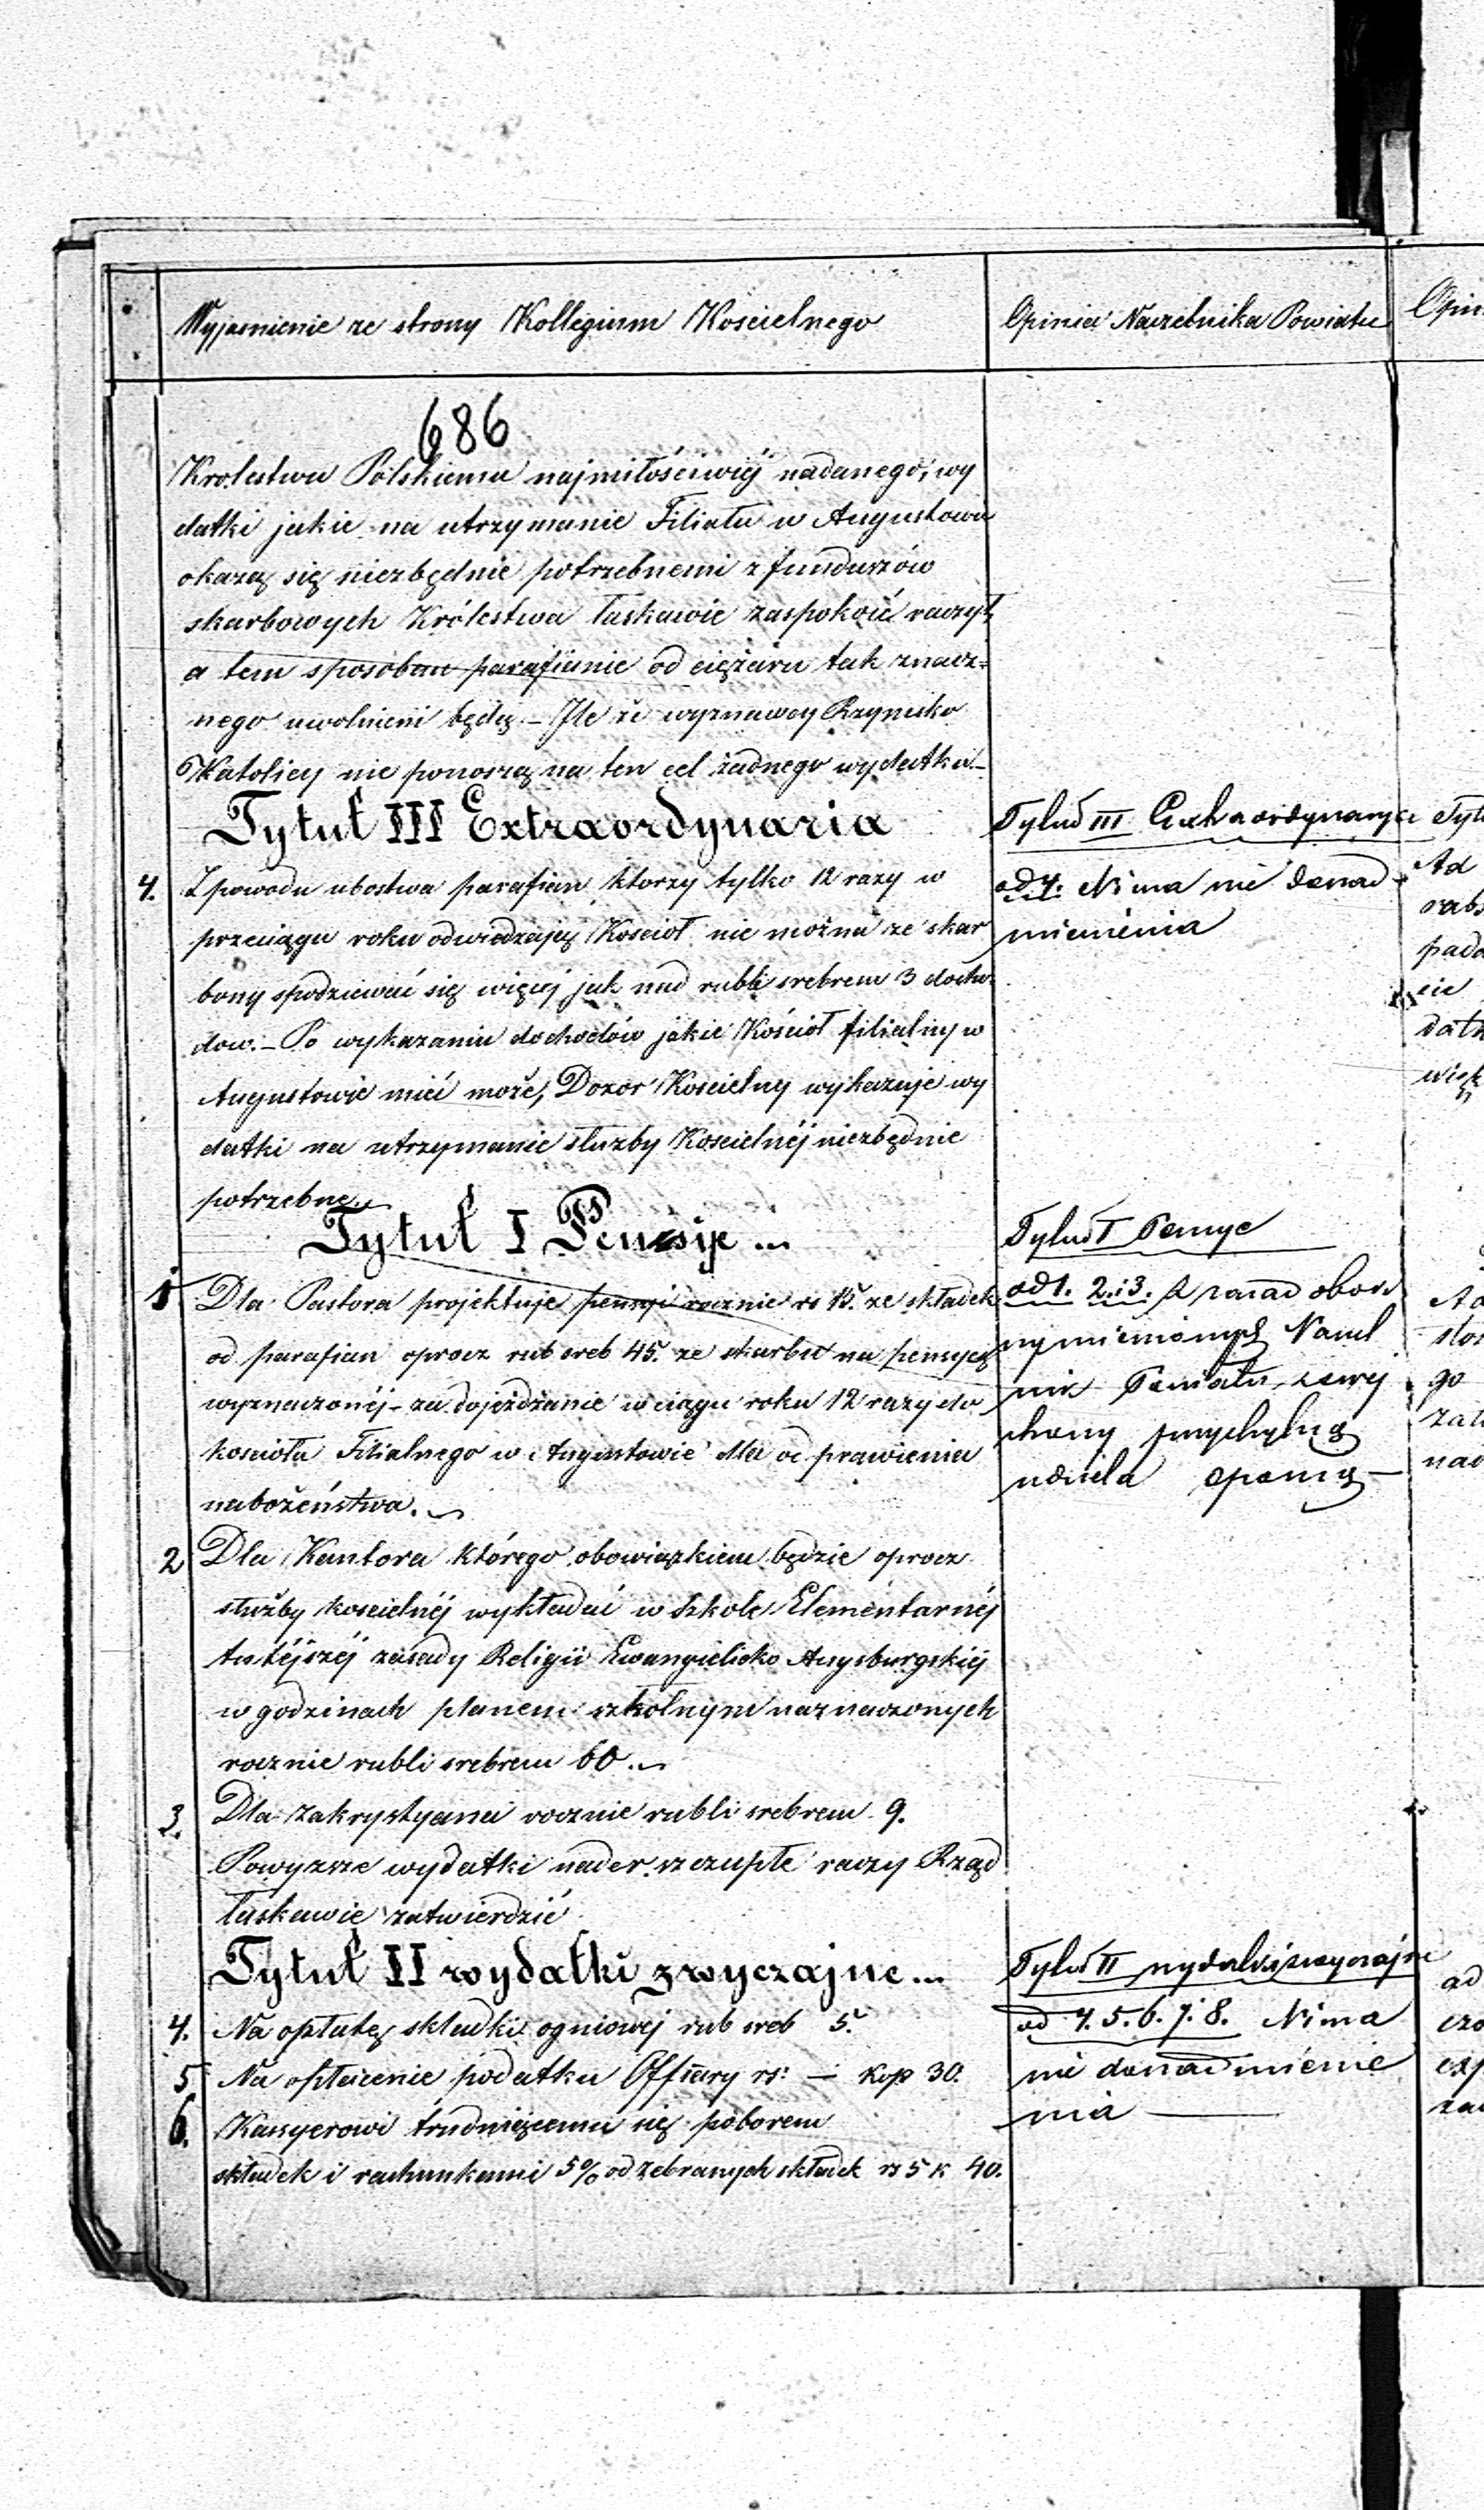 Wyjasnienie ze strony Kollegium Koscielnego
Opinia Naczelnika Powiatu
Opin
686
Krolestwu Polskiemu najmiłościwiéj nadanego, wy
datki jakie na utrzymanie Filiału w Augustowie
okażą się niezbędnie potrzebnemi z funduszów
skarbowych Królestwa łaskawie zaspokoić raczył,
a tem sposobem parafianie od ciężaru tak znacz=
nego uwolnieni będą. – Ile że wyznawcy Rzymsko
Katolicy nie ponoszą na ten cel żadnego wydatku. –
Tytuł III Extraordynaria
4. Z powodu ubostwa parafian ktorzy tylko 12 razy w
przeciągu roku odwiedzają Kosciół nie można ze skar
bony spodziewać się więcéj jak nad rubli srebrem 3 docho
dow. – Po wykazaniu dochodów jakie Kościół filialny w
Augustowie mieć może, Dozor Koscielny wykazuje wy
datki na utrzymanie służby Koscielnéj niezbędnie
potrzebne.
Tytuł I Pensje ...
1 Dla Pastora projektuje pensyi rocznie rs 15. ze składek
od parafian oprocz rub sreb 45. ze skarbu na pensyę
wyznaczonéj – za dojeżdżanie w ciągu roku 12 razy do
kościoła Filialnego w Augustowie dla od prawienia
nabożeństwa.
2 Dla Kantora którego obowiązkiem będzie oprocz
służby koscielnéj wykładać w szkole Elementarnéj
tutéjszéj zasady Religii Ewangielicko Augsburgskiéj
w godzinach planem szkolnym naznaczonych
rocznie rubli srebrem 60.
3. Dla Zakrystyana rocznie rubli srebrem 9.
Powyzsze wydatki nader szczupłe raczy Rząd
łaskawie zatwierdzić
Tytuł II wydatki zwyczajne ...
4. Na opłatę składki ogniowej rub sreb 5.
5 Na opłacenie podatku Offiary rs: – kop 30.
6. Kassyerowi trudniącemu się poborem
składek i rachunkami 5% od zebranych składek rs 5 k 40.
Tytuł III Extraordynarya
od 4. Nima nic do nad
mienienia
Tytuł I Pensye
od 1. 2. i 3. Z zasad obok
wymienionych Naczel
nik Powiatu swej
strony przychylną
udziela opinią –
Tytuł II wydatki zwyczajne
od 4. 5. 6. 7. i 8. Nima
nic do nadmienie
nia –